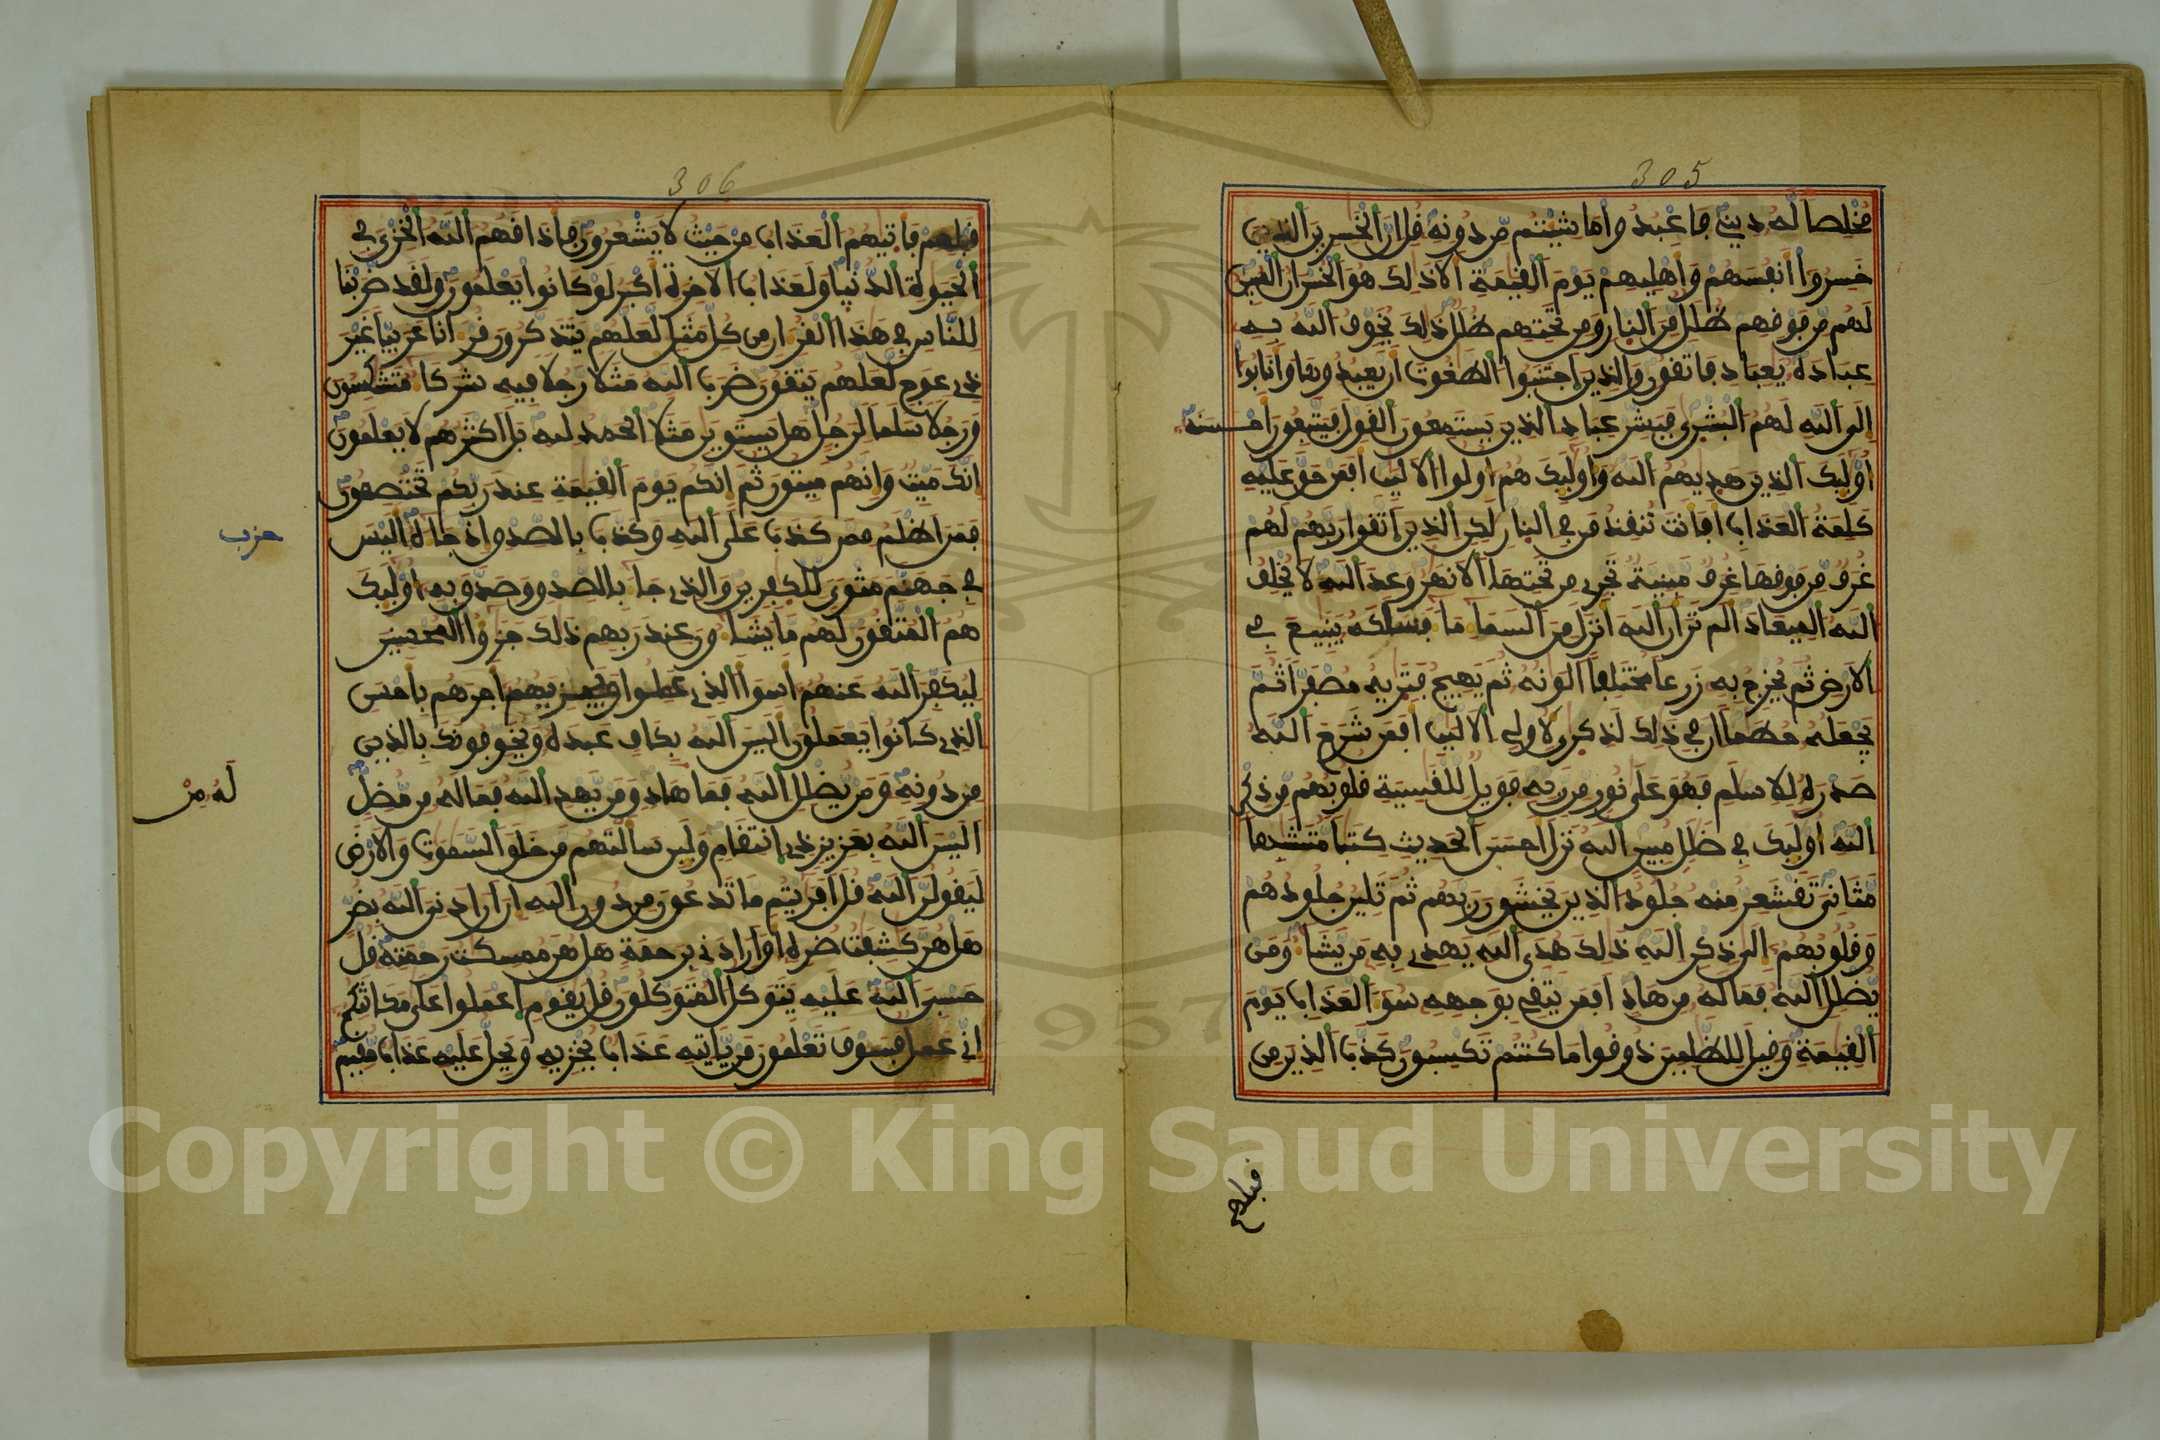 305
مخلصا له ديني فاعبدوا ما شيتم من دونه قل ان الخسرين الذين
خسروا انفسهم واهليهم يوم القيمة الا ذلك هو الخسران المبين
لهم من فوقهم ظلل من النار ومن تحتهم ظلل ذلك يخوف الله به
عباده يعباد فاتقون والذين اجتنبوا الطغوت ان يعبدوها وانابوا
الى الله لهم البشرى فبشر عباد الذين يستمعون القول فيتبعون احسنه
اوليك الذين هديهم الله واوليك هم اولوا الالبب افمن حق عليه
كلمة العذاب افانت تنقذ من في النار لكن الذين اتقوا ربهم لهم
غرف من فوقها غرف مبنية تجرى من تحتها الانهر وعد الله لا يخلف
الله الميعاد الم تر ان الله انزل من السما ما فسلكه ينبيع في
الارض ثم يخرج به زرعا مختلفا الونه ثم يهيج فتريه مصفرا ثم
يجعله حطما ان في ذلك لذكرى لاولى الالبب افمن شرح الله
صدره للاسلم فهو على نور من ربه فويل للقسية قلوبهم من ذكر
الله اوليك في ضلل مبين الله نزل احسن الحديث كتبا متشبها
مثاني تقشعر منه جلود الذين يخشون ربهم ثم تلين جلودهم
وقلوبهم الى ذكر الله ذلك هدى الله يهدى به من يشا ومن
يضلل الله فما له من هاد افمن يتقي بوجهه سو العذاب يوم
القيمة وقيل للظلمين ذوقوا ما كنتم تكسبون كذب الذين من
قبلهم
306
قبلهم فاتيهم العذاب من حيث لا يشعرون فاذاقهم الله الخزى في
الحيوة الدنيا ولعذاب الاخرة اكبر لو كانوا يعلمون ولقد ضربنا
للناس في هذا القران من كل مثل لعلهم يتذكرون قرانا عربيا غير
ذى عوج لعلهم يتقون ضرب الله مثلا رجلا فيه شركا متشكسون
ورجلا سلما لرجل هل يستوين مثلا الحمد لله بل اكثرهم لا يعلمون
انك ميت وانهم ميتون ثم انكم يوم القيمة عند ربكم تختصمون
فمن اظلم ممن كذب على الله وكذب بالصدق اذ جاه اليس
حزب
في جهنم مثوى للكفرين والذى جا بالصدق وصدق به اوليك
هم المتقون لهم ما يشاون عند ربهم ذلك جزوا المحسنين
ليكفر الله عنهم اسوا الذى عملوا ويجزيهم اجرهم باحسن
الذى كانوا يعملون اليس الله بكاف عبده ويخوفونك بالذين
من دونه ومن يضلل الله فما هاد ومن يهد الله فما له من مضل
له من
اليس الله بعزيز ذى انتقام ولين سالتهم من خلق السموت والارض
ليقولن الله قل افريتم ما تدعون من دون الله ان ارادني الله بضر
هل هن كشفت ضره او ارادني برحمة هل هن ممسكت رحمته قل
حسبي الله عليه يتوكل المتوكلون قل يقوم اعملوا على مكانتكم
اني عمل فسوف تعلمون من ياتيه عذاب يخزيه ويحل عليه عذاب مقيم
1957
Copyright © King Saud University